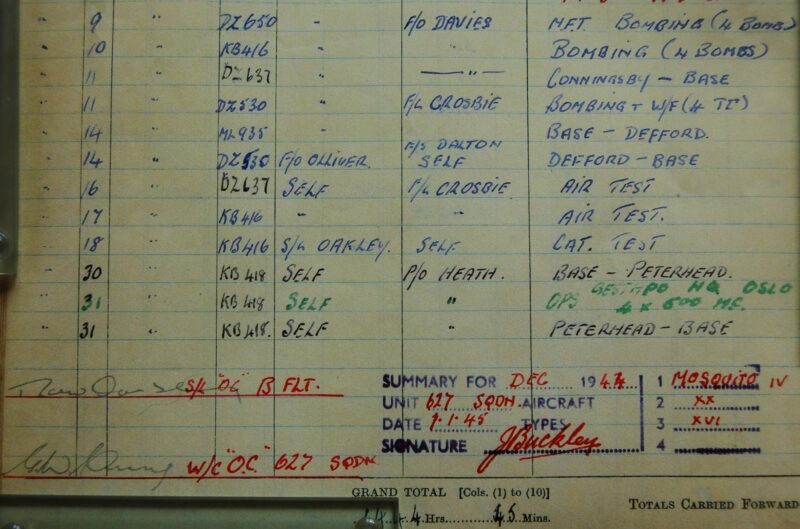 " 9 " DZ650 " F/O DAVIES MFT BOMBING (4 BOMBS)
" 10 " KB416 " " BOMBING (4 BOMBS)
" 11 " DZ637 " — " — CONNINGSBY – BASE
" 11 " DZ530 " F/L CROSBIE BOMBING + W/F (4 TI)
" 14 " ML935 " F/S DALTON BASE – DEFFORD.
" 14 " DZ530 F/O OLLIVER. SELF DEFFORD – BASE
" 16 " DZ637 SELF F/L CROSBIE AIR TEST
" 17 " KB416 " " AIR TEST.
" 18 " KB416 S/L OAKLEY. SELF CAT. TEST
" 30 " KB418 SELF P/O HEATH. BASE – PETERHEAD.
" 31 " KB418 SELF " OPS GESTAPO HQ OSLO
4 x 500 MC.
" 31 " KB418. SELF " PETERHEAD – BASE
S/L "OC" B FLT.
SUMMARY FOR DEC 1944 1 MOSQUITO IV
UNIT 627 SQDN. AIRCRAFT 2 XX
DATE 1.1.45 TYPES 3 XVI
SIGNATURE JBuckley 4
W/C "O.C." 627 SQDN
GRAND TOTAL [Cols. (1) to (10)]
Hrs. 45 Mins.
TOTALS CARRIED FORWARD